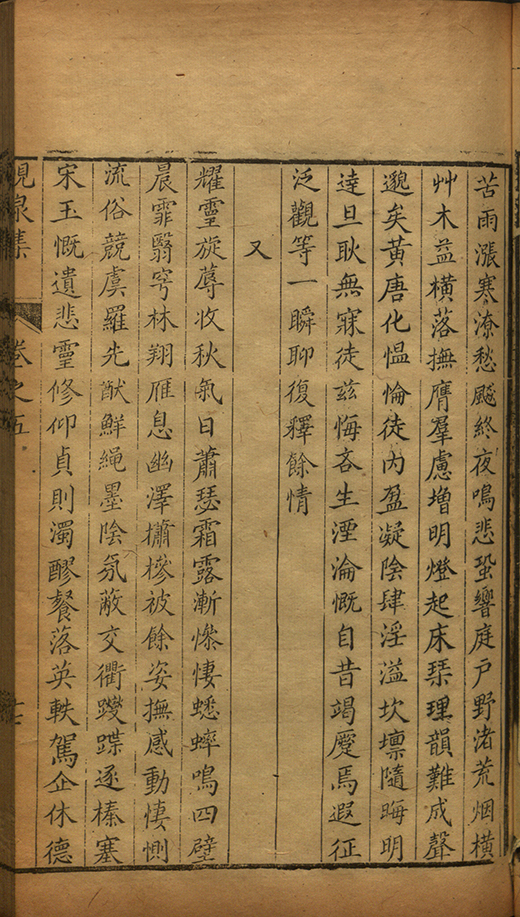 苦雨漲寒潦愁飈終夜鳴悲蛩響庭戶野渚荒烟橫
艸木益橫落撫膺羣慮增明燈起床琹理韻難成聲
邈矣黃唐化愠惀徒內盈凝陰肆淫溢坎壈隨晦明
逹旦耿無寐徒茲悔吝生湮淪慨自昔竭蹷焉遐征
泛觀等一瞬聊復釋餘情
又
耀靈旋蓐收秋氣日蕭瑟霜露漸慘悽蟋蟀鳴四壁
晨霏翳穹林翔雁息幽澤櫹槮被餘姿撫感動悽惻
流俗競虞羅先猷鮮繩墨陰氛蔽交衢躞蹀逐榛塞
宋玉慨遺悲靈修仰貞則濁醪餐落英軼駕企休德
泉集
卷之五